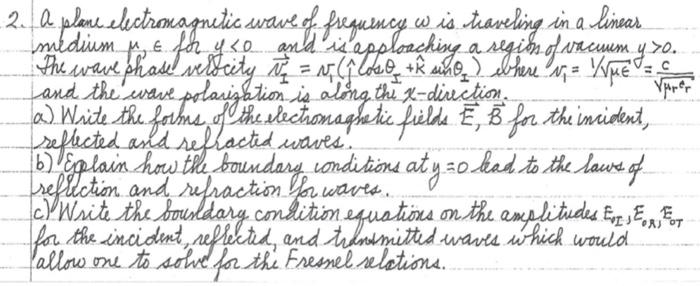 2. A plane electromagnetic wave of frequency ω is traveling in a linear
medium μ, ε for y<0 and is approaching a region of vacuum y>0.
The wave phase velocity v⃗_I = v₁(ĵ cosθ_I + k̂ sinθ_I) where v₁ = 1/√με = c/√μᵣεᵣ
and the wave polarization is along the x-direction.
a) Write the forms of the electromagnetic fields E⃗, B⃗ for the incident,
reflected and refracted waves.
b) Explain how the boundary conditions at y=0 lead to the laws of
reflection and refraction for waves.
c) Write the boundary condition equations on the amplitudes E_OI, E_OR, E_OT
for the incident, reflected, and transmitted waves which would
allow one to solve for the Fresnel relations.